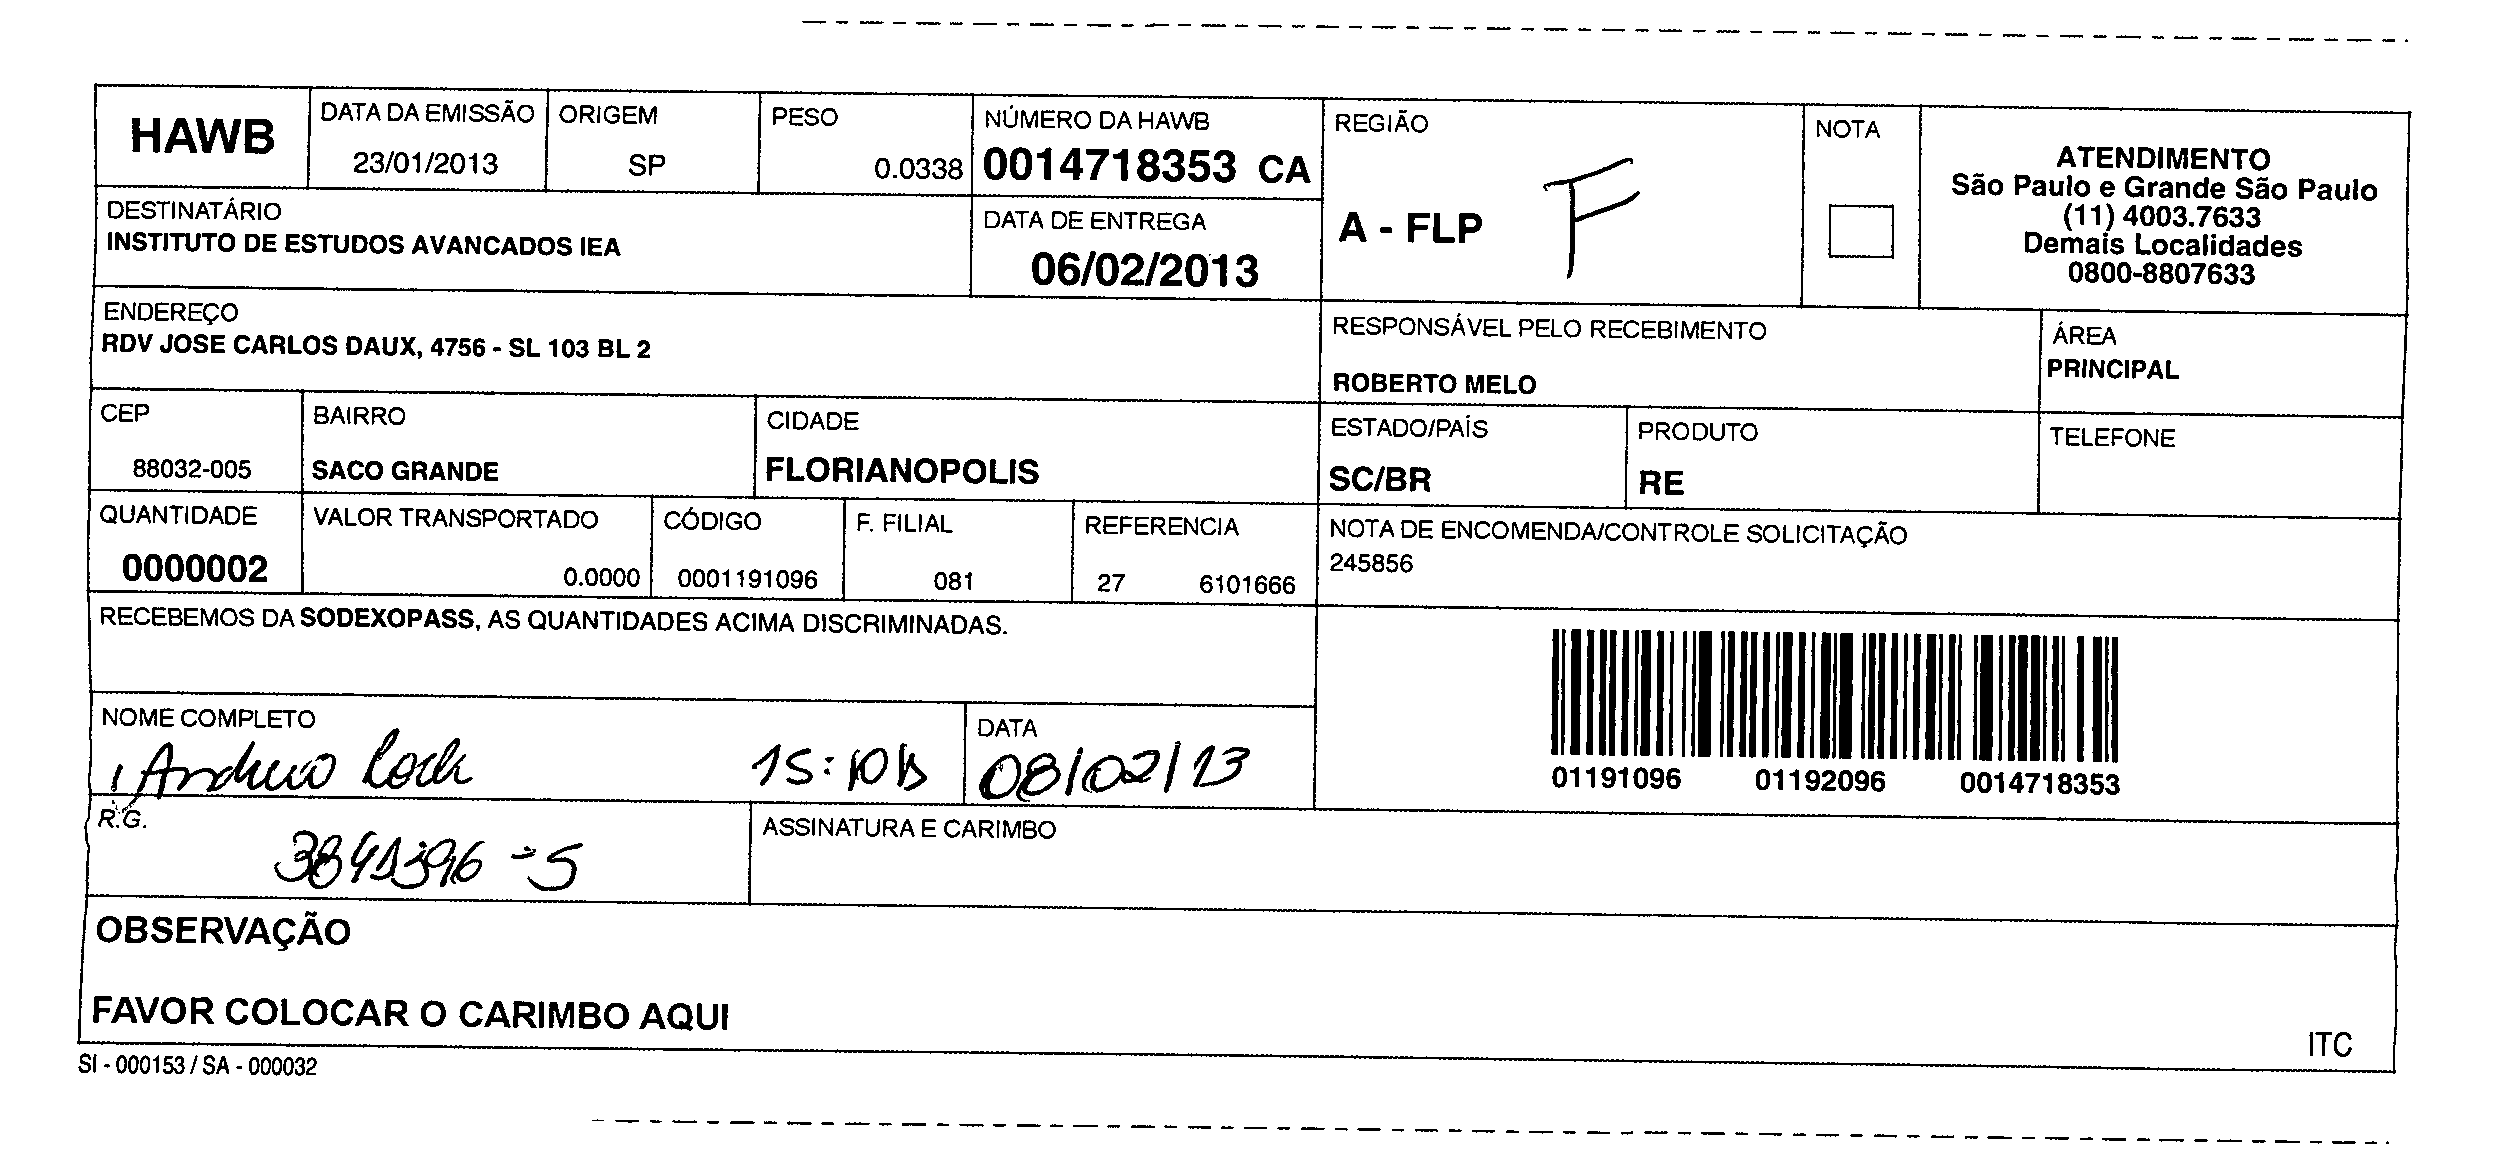 HAWB
DATA DA EMISSÃO
23/01/2013
ORIGEM
SP
PESO
0.0338
NÚMERO DA HAWB
0014718353 CA
REGIÃO
A - FLP F
NOTA
ATENDIMENTO
São Paulo e Grande São Paulo
(11) 4003.7633
Demais Localidades
0800-8807633
DESTINATÁRIO
INSTITUTO DE ESTUDOS AVANCADOS IEA
DATA DE ENTREGA
06/02/2013
ENDEREÇO
RDV JOSE CARLOS DAUX, 4756 - SL 103 BL 2
RESPONSÁVEL PELO RECEBIMENTO
ROBERTO MELO
ÁREA
PRINCIPAL
CEP
88032-005
BAIRRO
SACO GRANDE
CIDADE
FLORIANOPOLIS
ESTADO/PAÍS
SC/BR
PRODUTO
RE
TELEFONE
QUANTIDADE
0000002
VALOR TRANSPORTADO
0.0000
CÓDIGO
0001191096
F. FILIAL
081
REFERENCIA
27 6101666
NOTA DE ENCOMENDA/CONTROLE SOLICITAÇÃO
245856
RECEBEMOS DA SODEXOPASS, AS QUANTIDADES ACIMA DISCRIMINADAS.
01191096 01192096 0014718353
NOME COMPLETO
15:10h
DATA
08/02/13
R.G.
ASSINATURA E CARIMBO
OBSERVAÇÃO
FAVOR COLOCAR O CARIMBO AQUI
ITC
SI - 000153 / SA - 000032